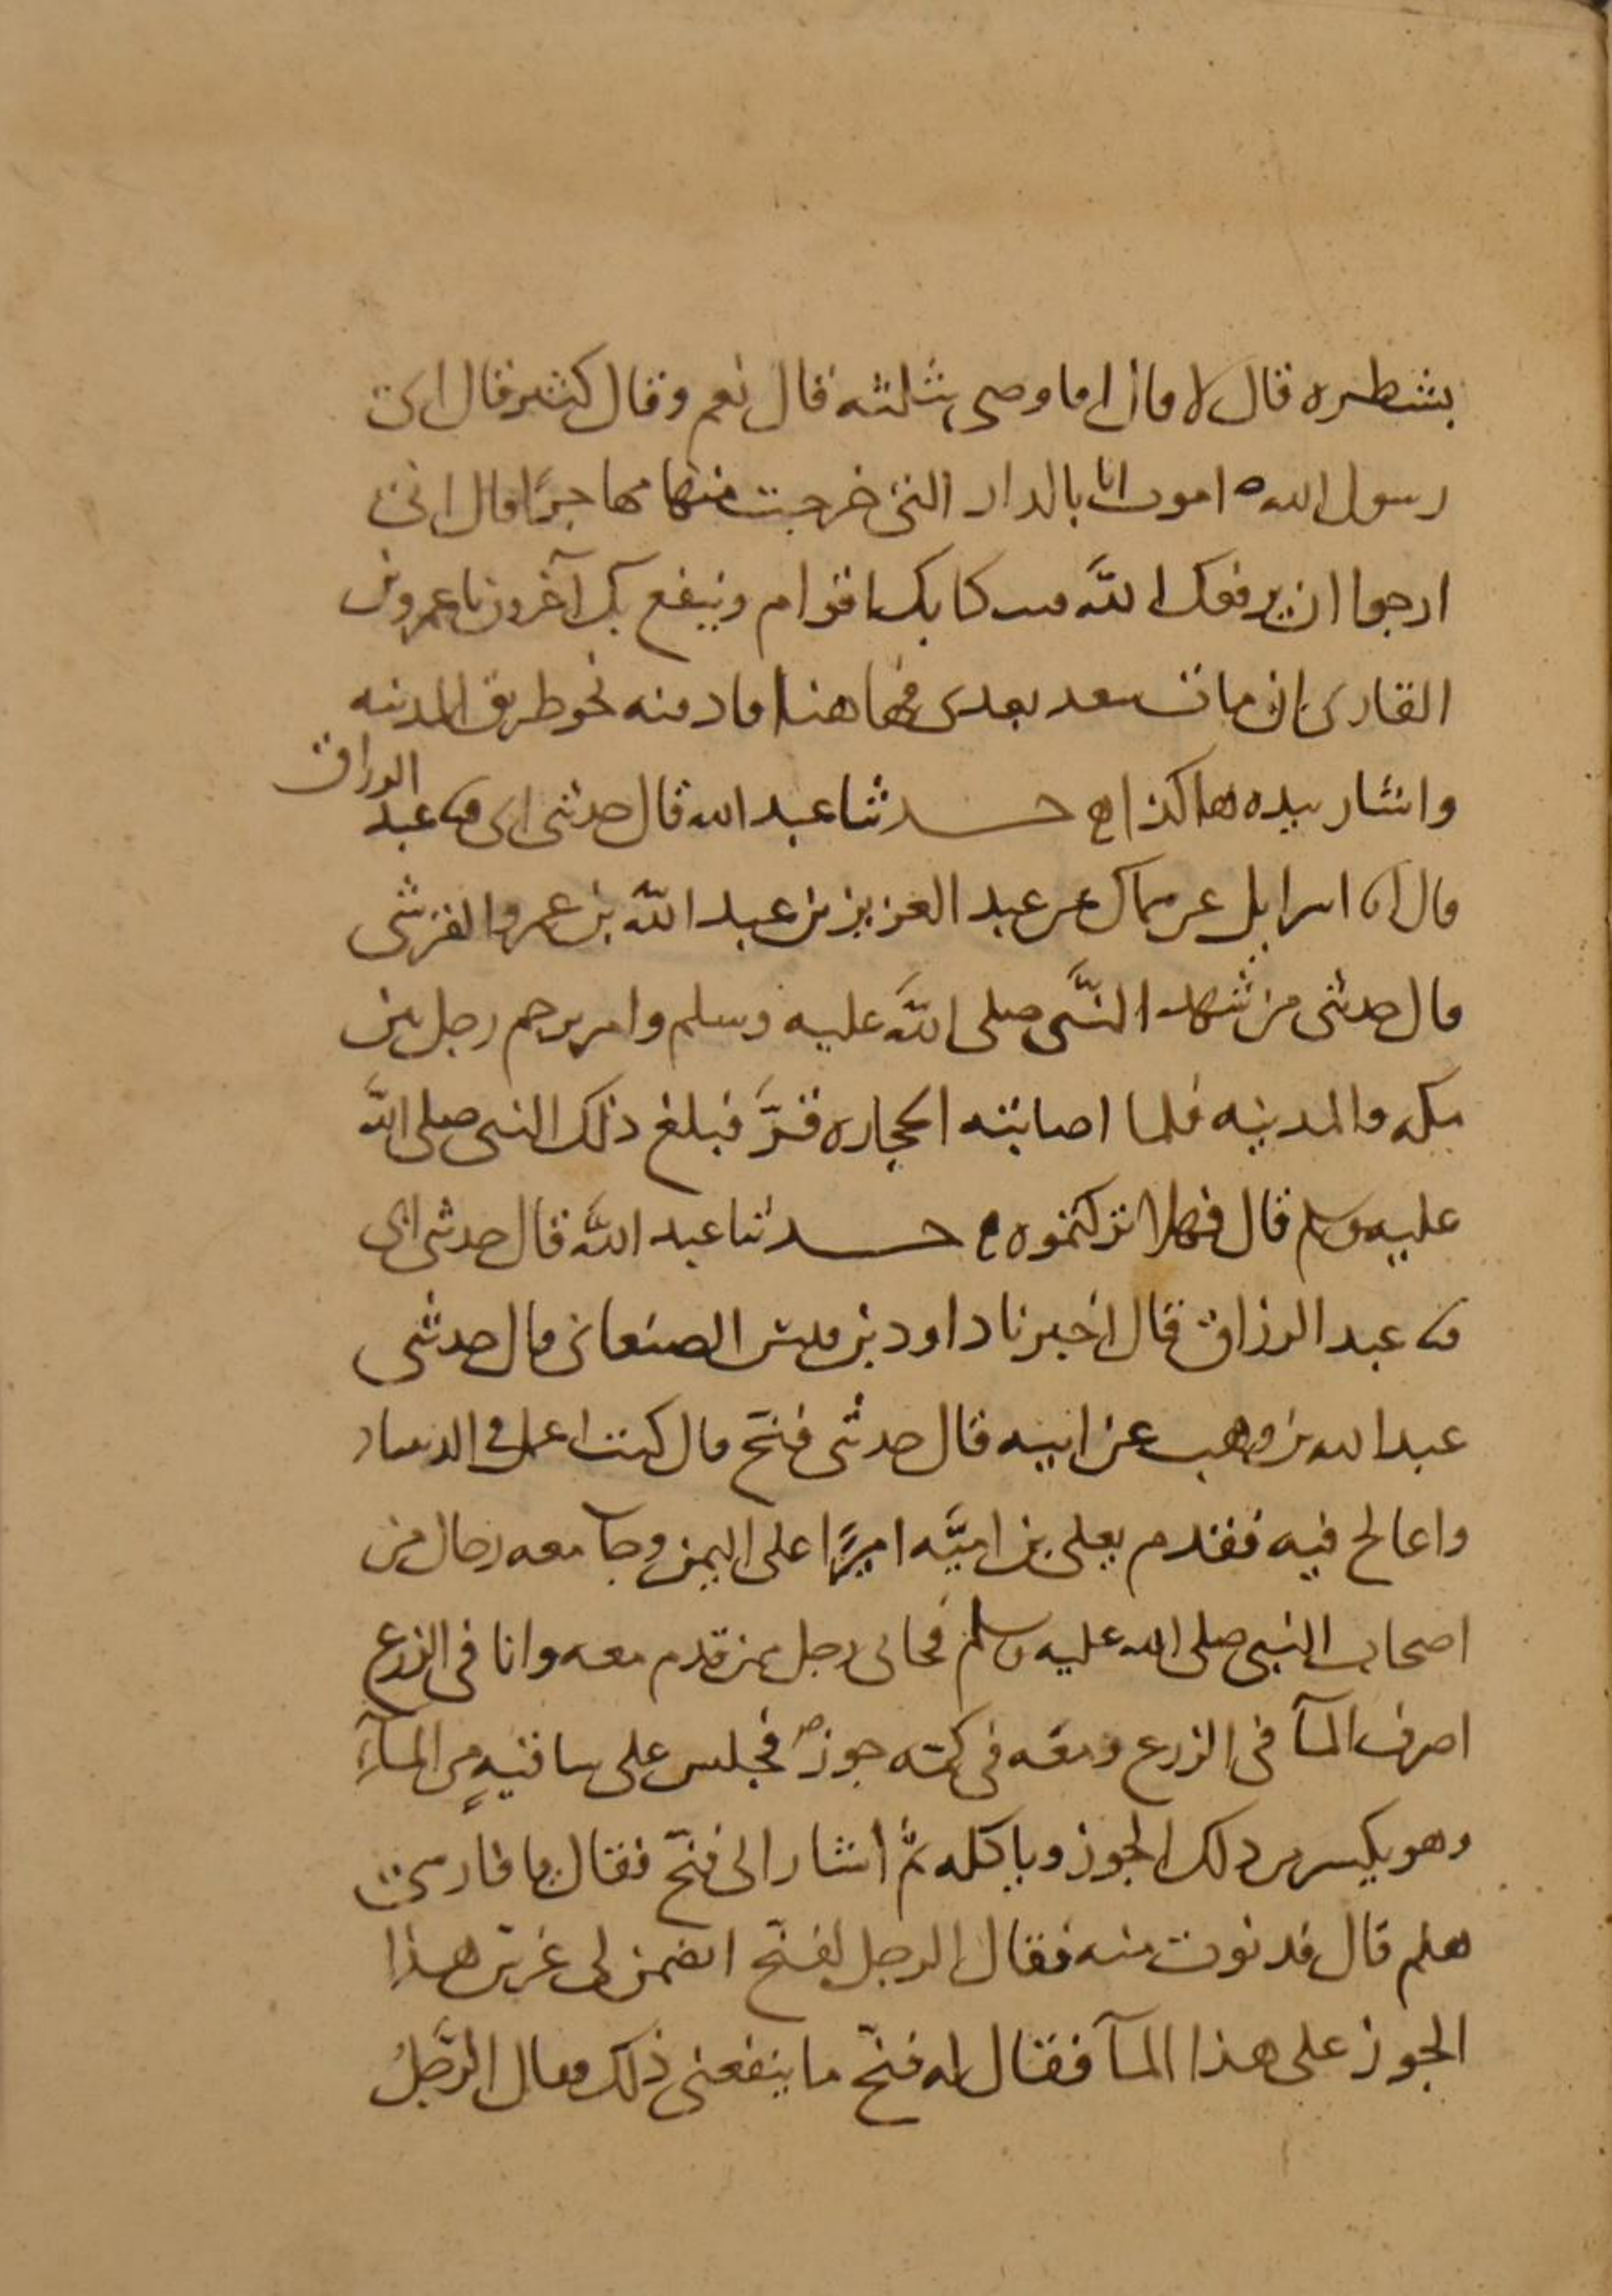 بشطره قال لا قال افاوصى بثلثه قال نعم وقال كثير قال اى
رسول الله اموت انا بالدار التى خرجت منها مهاجرًا قال انى
ارجوا ان يرفعك الله فينكا بك اقوام وينفع بك آخرون يا عمرو بن
القارى ان مات سعد بعدى فها هنا فادفنه نحو طريق المدينه
واشار بيده هاكذا حدثنا عبد الله قال حدثنى ابى ثنا عبد الرزاق
قال انا اسرايل عن سماك عن عبد العزيز بن عبد اللّه بن عمرو القرشى
قال حدثنى من شهد النَّبى صلى اللَّه عليه وسلم وامر برجم رجل بين
مكه والمدينه فلما اصابته الحجاره فرَّ فبلغ ذلك النبى صلى اللَّه
عليه وسلم قال فهلا تركتموه حدثنا عبد اللَّه قال حدثنى ابى
ثنا عبد الرزاق قال اخبرنا داود بن قيس الصنعانى قال حدثنى
عبد الله بن وهب عن ابيه قال حدثنى فنج قال كنت اعمل فى الدينباد
واعالج فيه فقدم يعلى بن اميَّه اميرًا على اليمن وجآ معه رجال من
اصحاب النبى صلى الله عليه وسلم فجانى رجل ممن قدم معه وانا فى الزرع
اصرف المآ فى الزرع ومعه فى كمّه جوز فجلس على ساقيهٍ من المآءِ
وهو يكسر من ذلك الجوز وياكله ثمَّ اشار الى فنّج فقال يا فارسى
هلم قال فدنوت منه فقال الرجل لفنّج اتضمن لى غرس هذا
الجوز على هذا المآ فقال له فنّج ما ينفعنى ذلك فقال الرَّجلُ